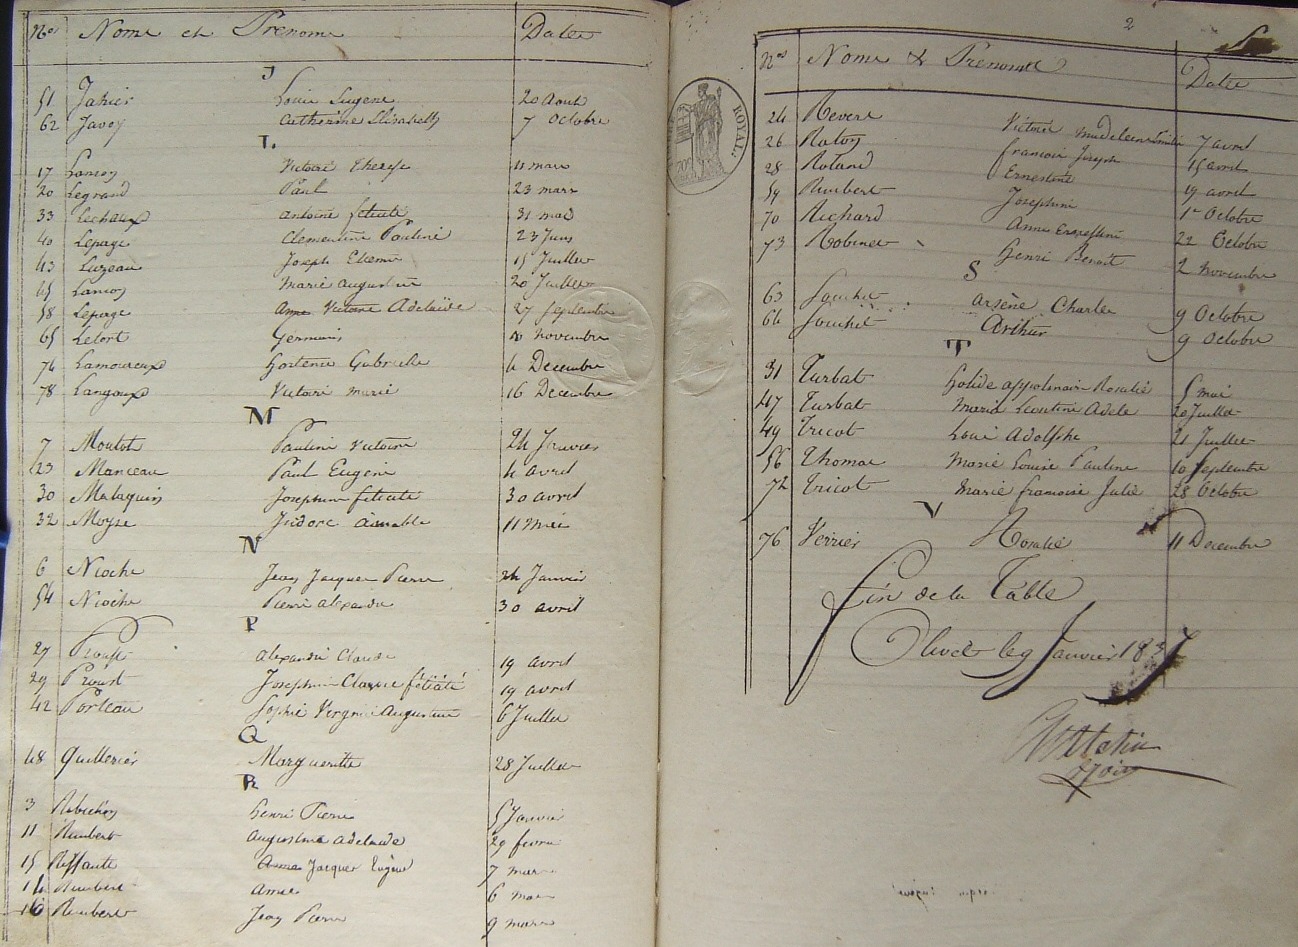 Nos Noms et Prenoms Dates
J
51 Jahier Louis Eugene 20 Aout
62 Javoy Catherine Elisabeth 7 Octobre
L
17 Lanson Victoire Therese 11 mars
20 Legrand Paul 23 mars
33 Lechaux antoine felicité 31 mai
40 Lepage Clementine Pauline 23 Juin
43 Luzeau Joseph Etienne 15 Juillet
45 Marie augustine 20 Juillet
58 Lepage Victoire Adelaïde 27 Septembre
65 Lefort Germain novembre
74 Lamoureux hortence Gabrielle 4 Decembre
78 Langoux Victoire marie 16 Decembre
M
7 Moutot Pauline Victoire 24 Janvier
23 Manceau Paul Eugene 4 avril
30 Malaquin Josephine felicité 30 avril
32 Moyse Isidore aimable 11 Mai
N
6 Nioche Jean Jacques Pierre 24 Janvier
54 Nioche Pierre alexandre 30 avril
P
27 Proust alexandre Claude 19 avril
29 Proust Josephine Clarisse félicité 19 avril
42 Porteau Sophie Augustine 6 Juillet
Q
48 Quillerier Marguerite 28 Juillet
R
3 Robichon henri Pierre 5 Janvier
11 Rimbert augustine adelaide 29 fevrier
15 Jacques Eugène 7 mars
14 Rimbert 6 mars
16 Rimbert Jean Pierre 9 mars
2
Nos Noms & Prenoms Dates
24 Victoire madeleine 7 avril
26 Raton francois Joseph 15 avril
28 Roland Ernestine 19 avril
59 Rimbert Josephine 1er Octobre
70 Richard Anne Ernestine 22 Octobre
73 Robinet henri Benoit 2 novembre
S
63 Souchet arsène Charles 9 Octobre
64 Souchet Arthur 9 octobre
T
31 Turbat appolinair Rosalie 5 mai
47 Turbat Maria Leontine Adele 20 Juillet
49 Tricot Louis Adolphe 21 Juillet
56 Thomas Marie Louise Pauline 10 Septembre
72 Tricot Marie francoise Julie 28 Octobre
V
76 Verrier Rosalie 11 Decembre
fin de la Table
Olivet le 9 Janvier 1837
ROYAL.